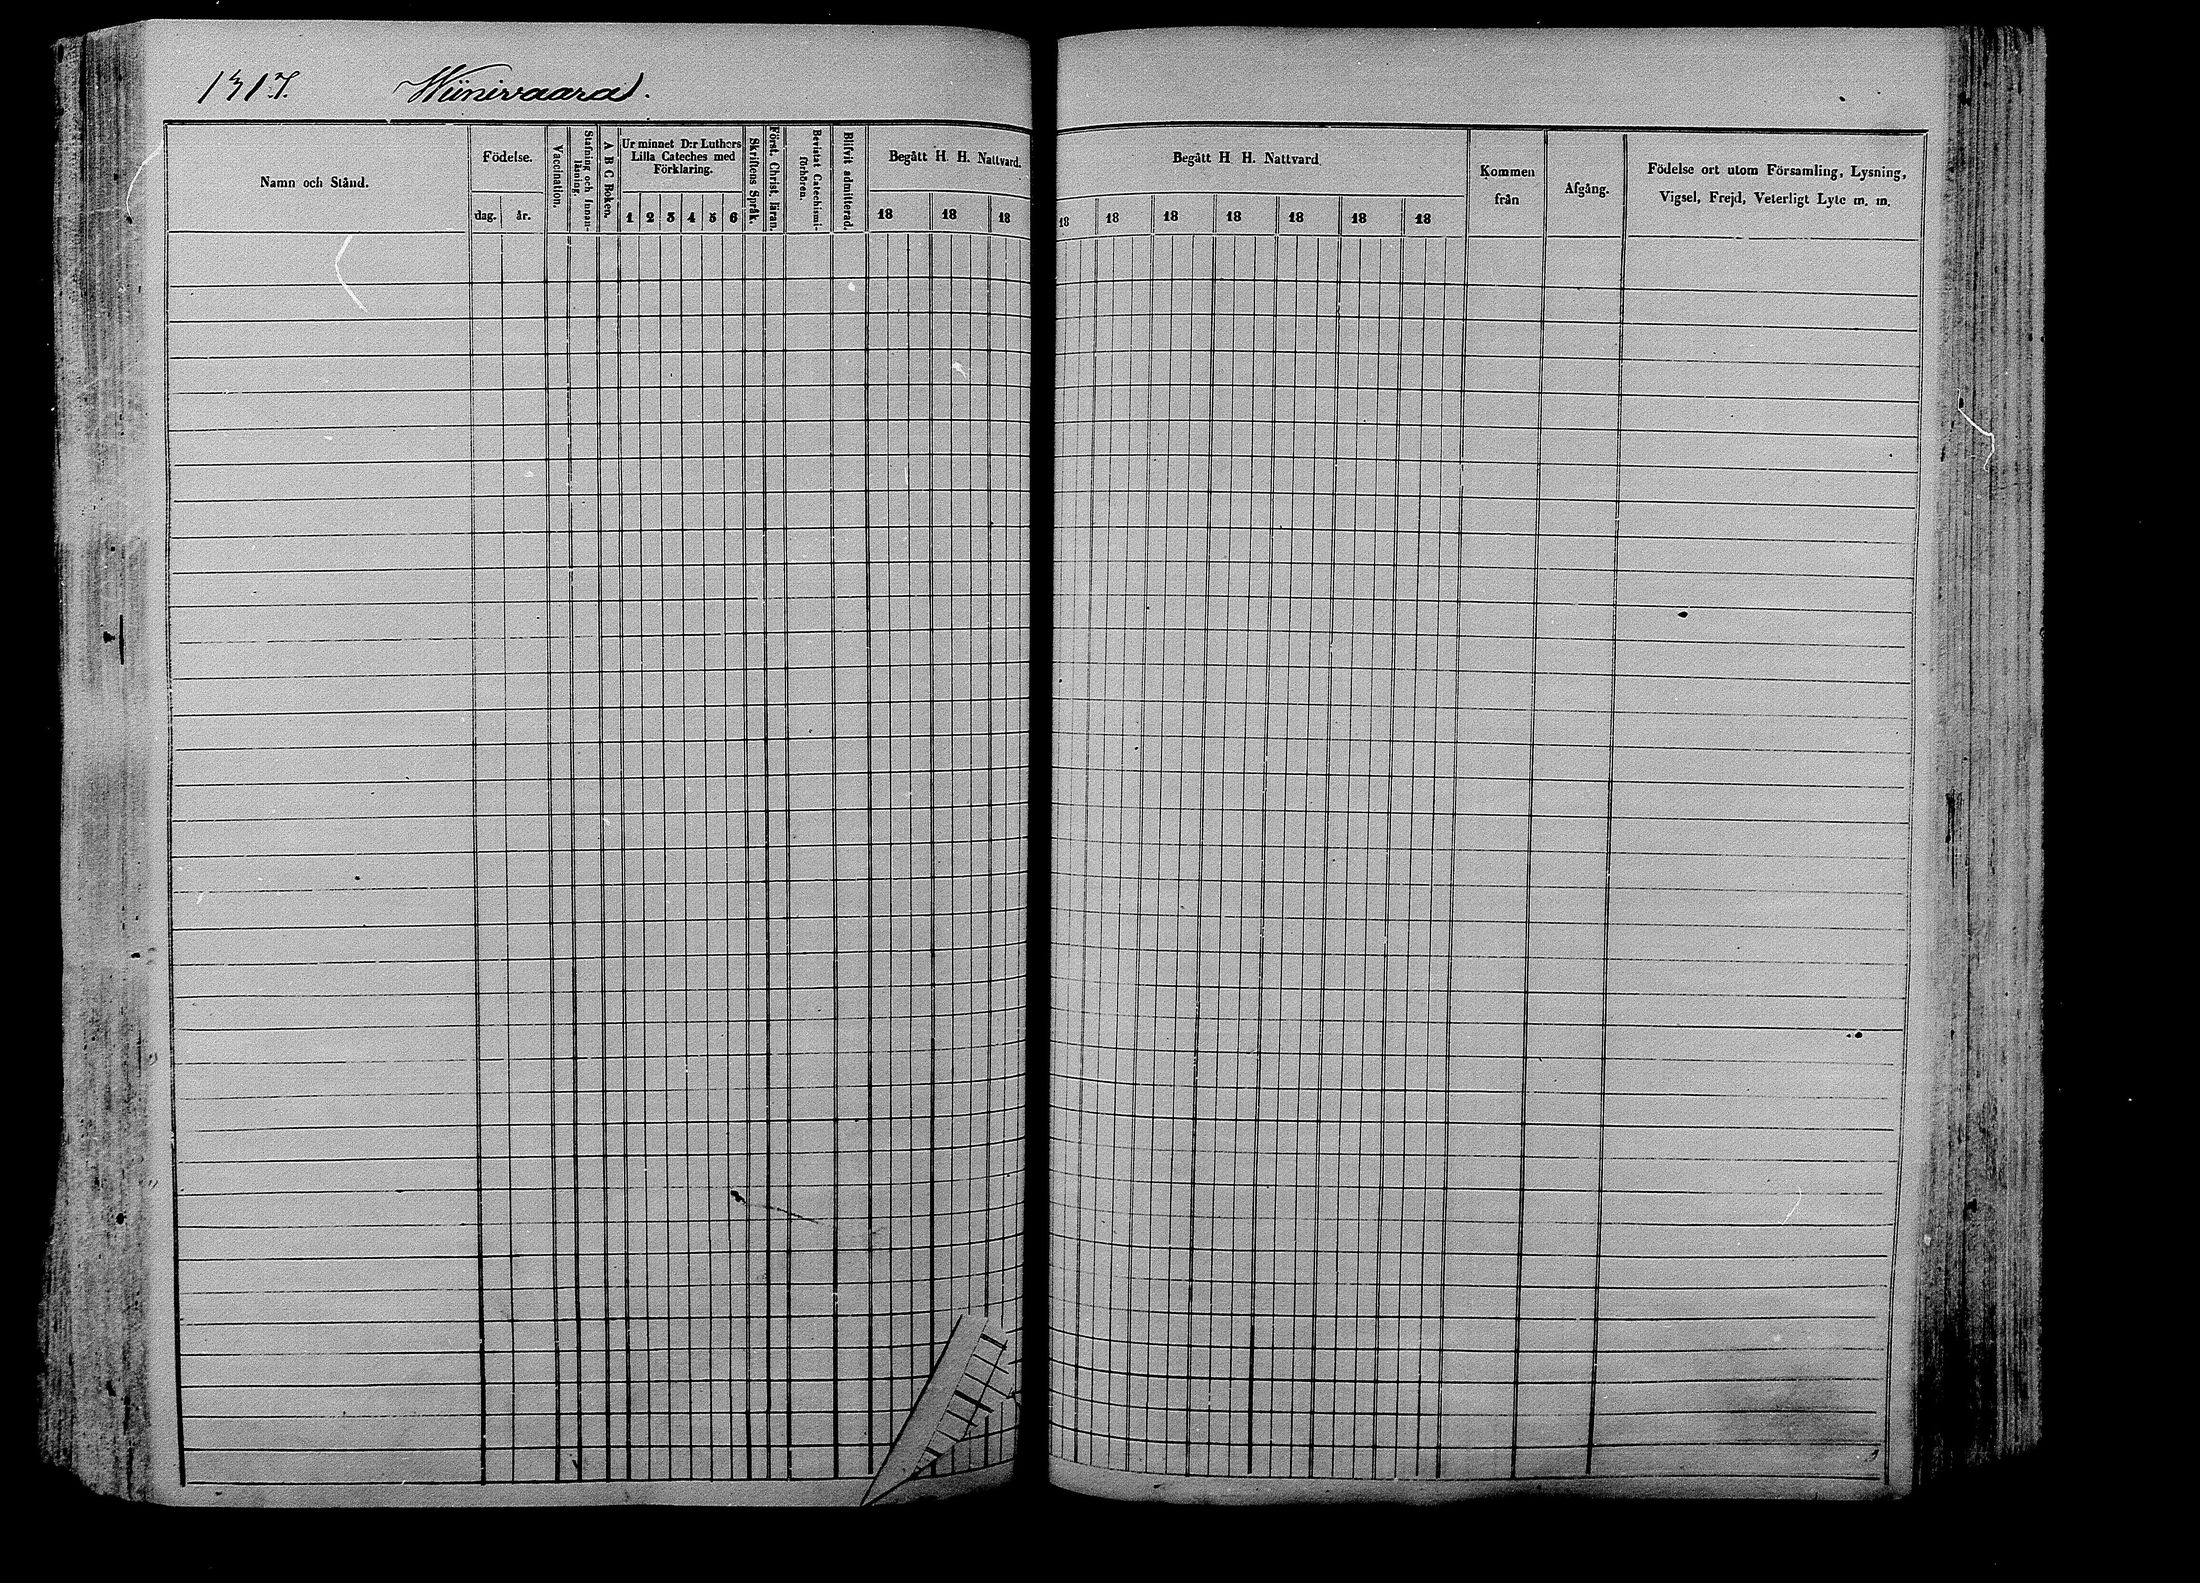 1317. Wiinivaara.
Namn och Stånd.
Födelse.
dag. år.
Vaccination.
Stafning och Innan-
läsning.
A B C Boken.
Ur minnet D:r Luthers
Lilla Cateches med
Förklaring.
1 2 3 4 5 6
Skriftens Språk.
Först. Christ. läran.
Bevistat Catechismi-
förhören.
Blifvit admitterad.
Begått H. H. Nattvard.
18 18 18
Begått H H. Nattvard
18 18 18 18 18 18 18
Kommen
från
Afgång.
Födelse ort utom Församling, Lysning,
Vigsel, Frejd, Veterligt Lyte m. m.